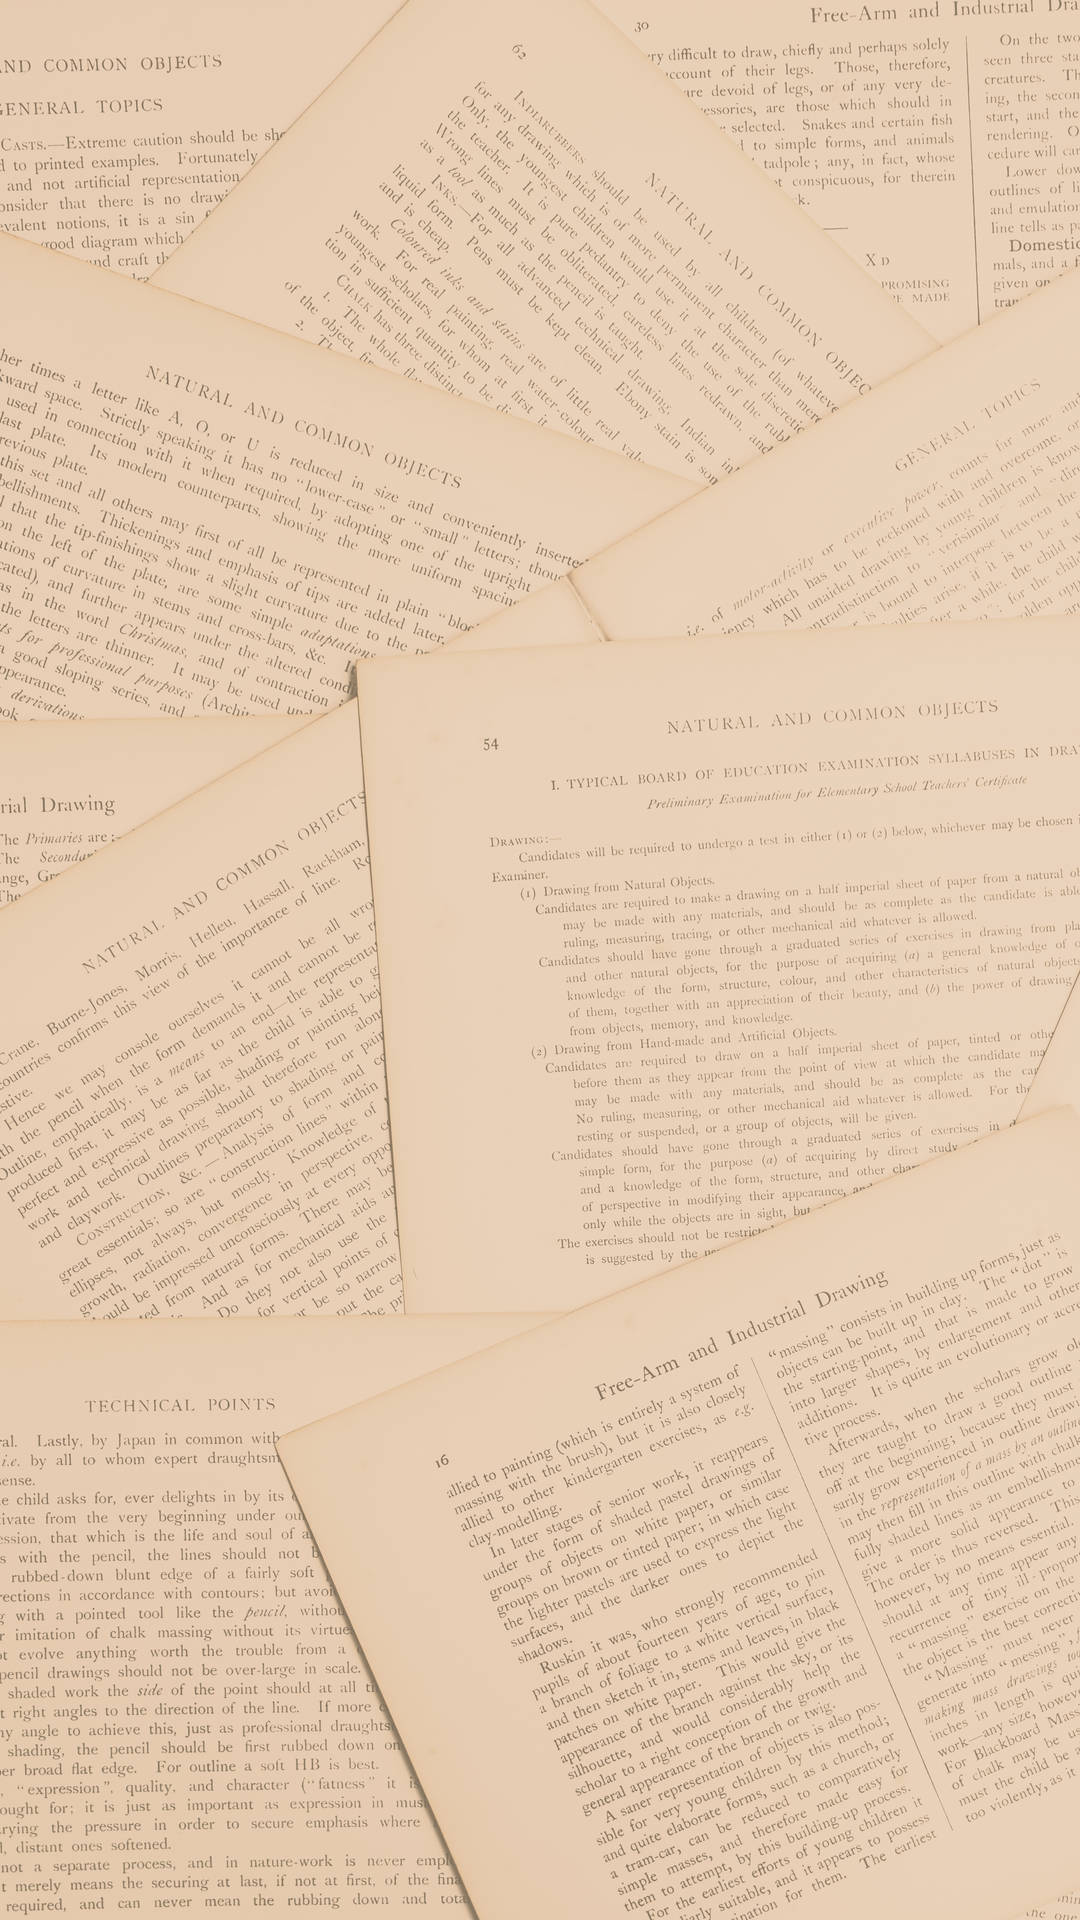 AND COMMON OBJECTS
GENERAL TOPICS
CASTS.—Extreme caution should be
to printed examples. Fortunately
and not artificial representation
consider that there is no
prevalent notions, it is a sin
good diagram which
and craft
62
NATURAL AND COMMON OBJEC
INDIARUBBERS should be used by all children (of whatever
for any drawing which is of more permanent character than mere
Only the youngest children would use it at the sole discretion
the teacher. It is pure pedantry to deny the use of the rubb
Wrong lines must be obliterated, careless lines redrawn, and
as a tool as much as the pencil is taught.
INKS.—For all advanced technical drawing, Indian in
liquid form. Pens must be kept clean. Ebony stain is
and is cheap.
Coloured inks and stains are of little real
work. For real painting, real water-colour
youngest scholars, for whom at first it
tion in sufficient quantity to be
CHALK has three distinct
1. The whole
of the object,
2.
30
Free-Arm and Industrial Dra
difficult to draw, chiefly and perhaps solely
account of their legs. Those, therefore,
are devoid of legs, or of any very de-
cessories, are those which should in
selected. Snakes and certain fish
to simple forms, and animals
tadpole; any, in fact, whose
conspicuous, for therein
X D
PROMISING
MADE
On the two
seen three sta
creatures. Th
ing, the secon
start, and the
rendering. O
cedure will can
Lower dow
outlines of li
and emulation
line tells as pa
Domestic
mals, and a f
given on
NATURAL AND COMMON OBJECTS
her times a letter like A, O, or U is reduced in size and conveniently inserted
kward space. Strictly speaking it has no "lower-case" or "small" letters; thou
used in connection with it when required, by adopting one of the upright
last plate. Its modern counterparts, showing the more uniform spacing
revious plate.
this set and all others may first of all be represented in plain "bloc
bellishments. Thickenings and emphasis of tips are added later.
that the tip-finishings show a slight curvature due to the
on the left of the plate, are some simple adaptations
ations of curvature in stems and cross-bars, &c. It
cated), and further appears under the altered cond
as in the word Christmas, and of contraction
the letters are thinner. It may be used und
ts for professional purposes (Archit
a good sloping series, and
ppearance.
derivations
GENERAL TOPICS
i.e. of motor-activity or executive power, counts far more and
iency which has to be reckoned with and overcome, or
All unaided drawing by young children is know
contradistinction to "verisimilar" and "dire
is bound to interpose between the
culties arise, if it is to be a
after a while, the child
for the chil
olden opp
rial Drawing
The Primaries are:—
The Secondar
ange, Gr
The
NATURAL AND COMMON OBJECTS
Crane, Burne-Jones, Morris, Helleu, Hassall, Rackham,
countries confirms this view of the importance of line.
stive.
Hence we may console ourselves it cannot be all wro
with the pencil when the form demands it and cannot be
Outline, emphatically, is a means to an end—the representa
produced first, it may be as far as the child is able to
perfect and expressive as possible, shading or painting bei
work and technical drawing should therefore run alon
and claywork. Outlines preparatory to shading or pain
CONSTRUCTION, &c.—Analysis of form and
great essentials; so are "construction lines" within
ellipses, not always, but mostly. Knowledge of
growth, radiation, convergence in perspective,
ould be impressed unconsciously at every oppo
ted from natural forms. There may be
And as for mechanical aids
Do they not also use the
for vertical points of
or be so narrow
put the ca
54
NATURAL AND COMMON OBJECTS
I. TYPICAL BOARD OF EDUCATION EXAMINATION SYLLABUSES IN DRA
Preliminary Examination for Elementary School Teachers' Certificate
DRAWING:—
Candidates will be required to undergo a test in either (1) or (2) below, whichever may be chosen
Examiner.
(1) Drawing from Natural Objects.
Candidates are required to make a drawing on a half imperial sheet of paper from a natural ob
may be made with any materials, and should be as complete as the candidate is able
ruling, measuring, tracing, or other mechanical aid whatever is allowed.
Candidates should have gone through a graduated series of exercises in drawing from pla
and other natural objects, for the purpose of acquiring (a) a general knowledge of
knowledge of the form, structure, colour, and other characteristics of natural objects
of them, together with an appreciation of their beauty, and (b) the power of drawing
from objects, memory, and knowledge.
(2) Drawing from Hand-made and Artificial Objects.
Candidates are required to draw on a half imperial sheet of paper, tinted or othe
before them as they appear from the point of view at which the candidate ma
may be made with any materials, and should be as complete as the can
No ruling, measuring, or other mechanical aid whatever is allowed. For the
resting or suspended, or a group of objects, will be given.
Candidates should have gone through a graduated series of exercises in
simple form, for the purpose (a) of acquiring by direct study
and a knowledge of the form, structure, and other char
of perspective in modifying their appearance, and
only while the objects are in sight, but
The exercises should not be restrict
is suggested by the
TECHNICAL POINTS
ral. Lastly, by Japan in common with
i.e. by all to whom expert draughtsm
sense.
e child asks for, ever delights in by its
tivate from the very beginning under ou
ession, that which is the life and soul of a
s with the pencil, the lines should not b
rubbed-down blunt edge of a fairly soft
rections in accordance with contours; but avoi
g with a pointed tool like the pencil, withou
r imitation of chalk massing without its virtue
ot evolve anything worth the trouble from a
pencil drawings should not be over-large in scale.
shaded work the side of the point should at all ti
t right angles to the direction of the line. If more
ny angle to achieve this, just as professional draughts
shading, the pencil should be first rubbed down on
er broad flat edge. For outline a soft HB is best.
"expression", quality, and character ("fatness" it is
ought for; it is just as important as expression in musi
rying the pressure in order to secure emphasis where
l, distant ones softened.
not a separate process, and in nature-work is never empl
t merely means the securing at last, if not at first, of the fina
required, and can never mean the rubbing down and tota
16
Free-Arm and Industrial Drawing
allied to painting (which is entirely a system of
massing with the brush), but it is also closely
allied to other kindergarten exercises, as e.g.
clay-modelling.
In later stages of senior work, it reappears
under the form of shaded pastel drawings of
groups of objects on white paper, or similar
groups on brown or tinted paper; in which case
the lighter pastels are used to express the light
surfaces, and the darker ones to depict the
shadows.
Ruskin it was, who strongly recommended
pupils of about fourteen years of age, to pin
a branch of foliage to a white vertical surface,
and then sketch it in, stems and leaves, in black
patches on white paper. This would give the
appearance of the branch against the sky, or its
silhouette, and would considerably help the
scholar to a right conception of the growth and
general appearance of the branch or twig.
A saner representation of objects is also pos-
sible for very young children by this method;
and quite elaborate forms, such as a church, or
a tram-car, can be reduced to comparatively
simple masses, and therefore made easy for
them to attempt, by this building-up process.
For the earliest efforts of young children it
liarly suitable, and it appears to possess
ination for them. The earliest
"massing" consists in building up forms, just as
objects can be built up in clay. The "dot" is
the starting-point, and that is made to grow
into larger shapes, by enlargement and other
additions. It is quite an evolutionary or accre
tive process.
Afterwards, when the scholars grow old
they are taught to draw a good outline
off at the beginning; because they must
sarily grow experienced in outline drawi
in the representation of a mass by an outline
may then fill in this outline with chalk
fully shaded lines as an embellishme
give a more solid appearance to
The order is thus reversed. This
however, by no means essential.
should at any time appear any
recurrence of tiny ill-propor
a "massing" exercise on the
the object is the best correcti
"Massing" must never
generate into "messing",
making mass drawings too
inches in length is qui
work—any size, howev
For Blackboard Mass
of chalk may be us
must the child be a
too violently, as it
the one